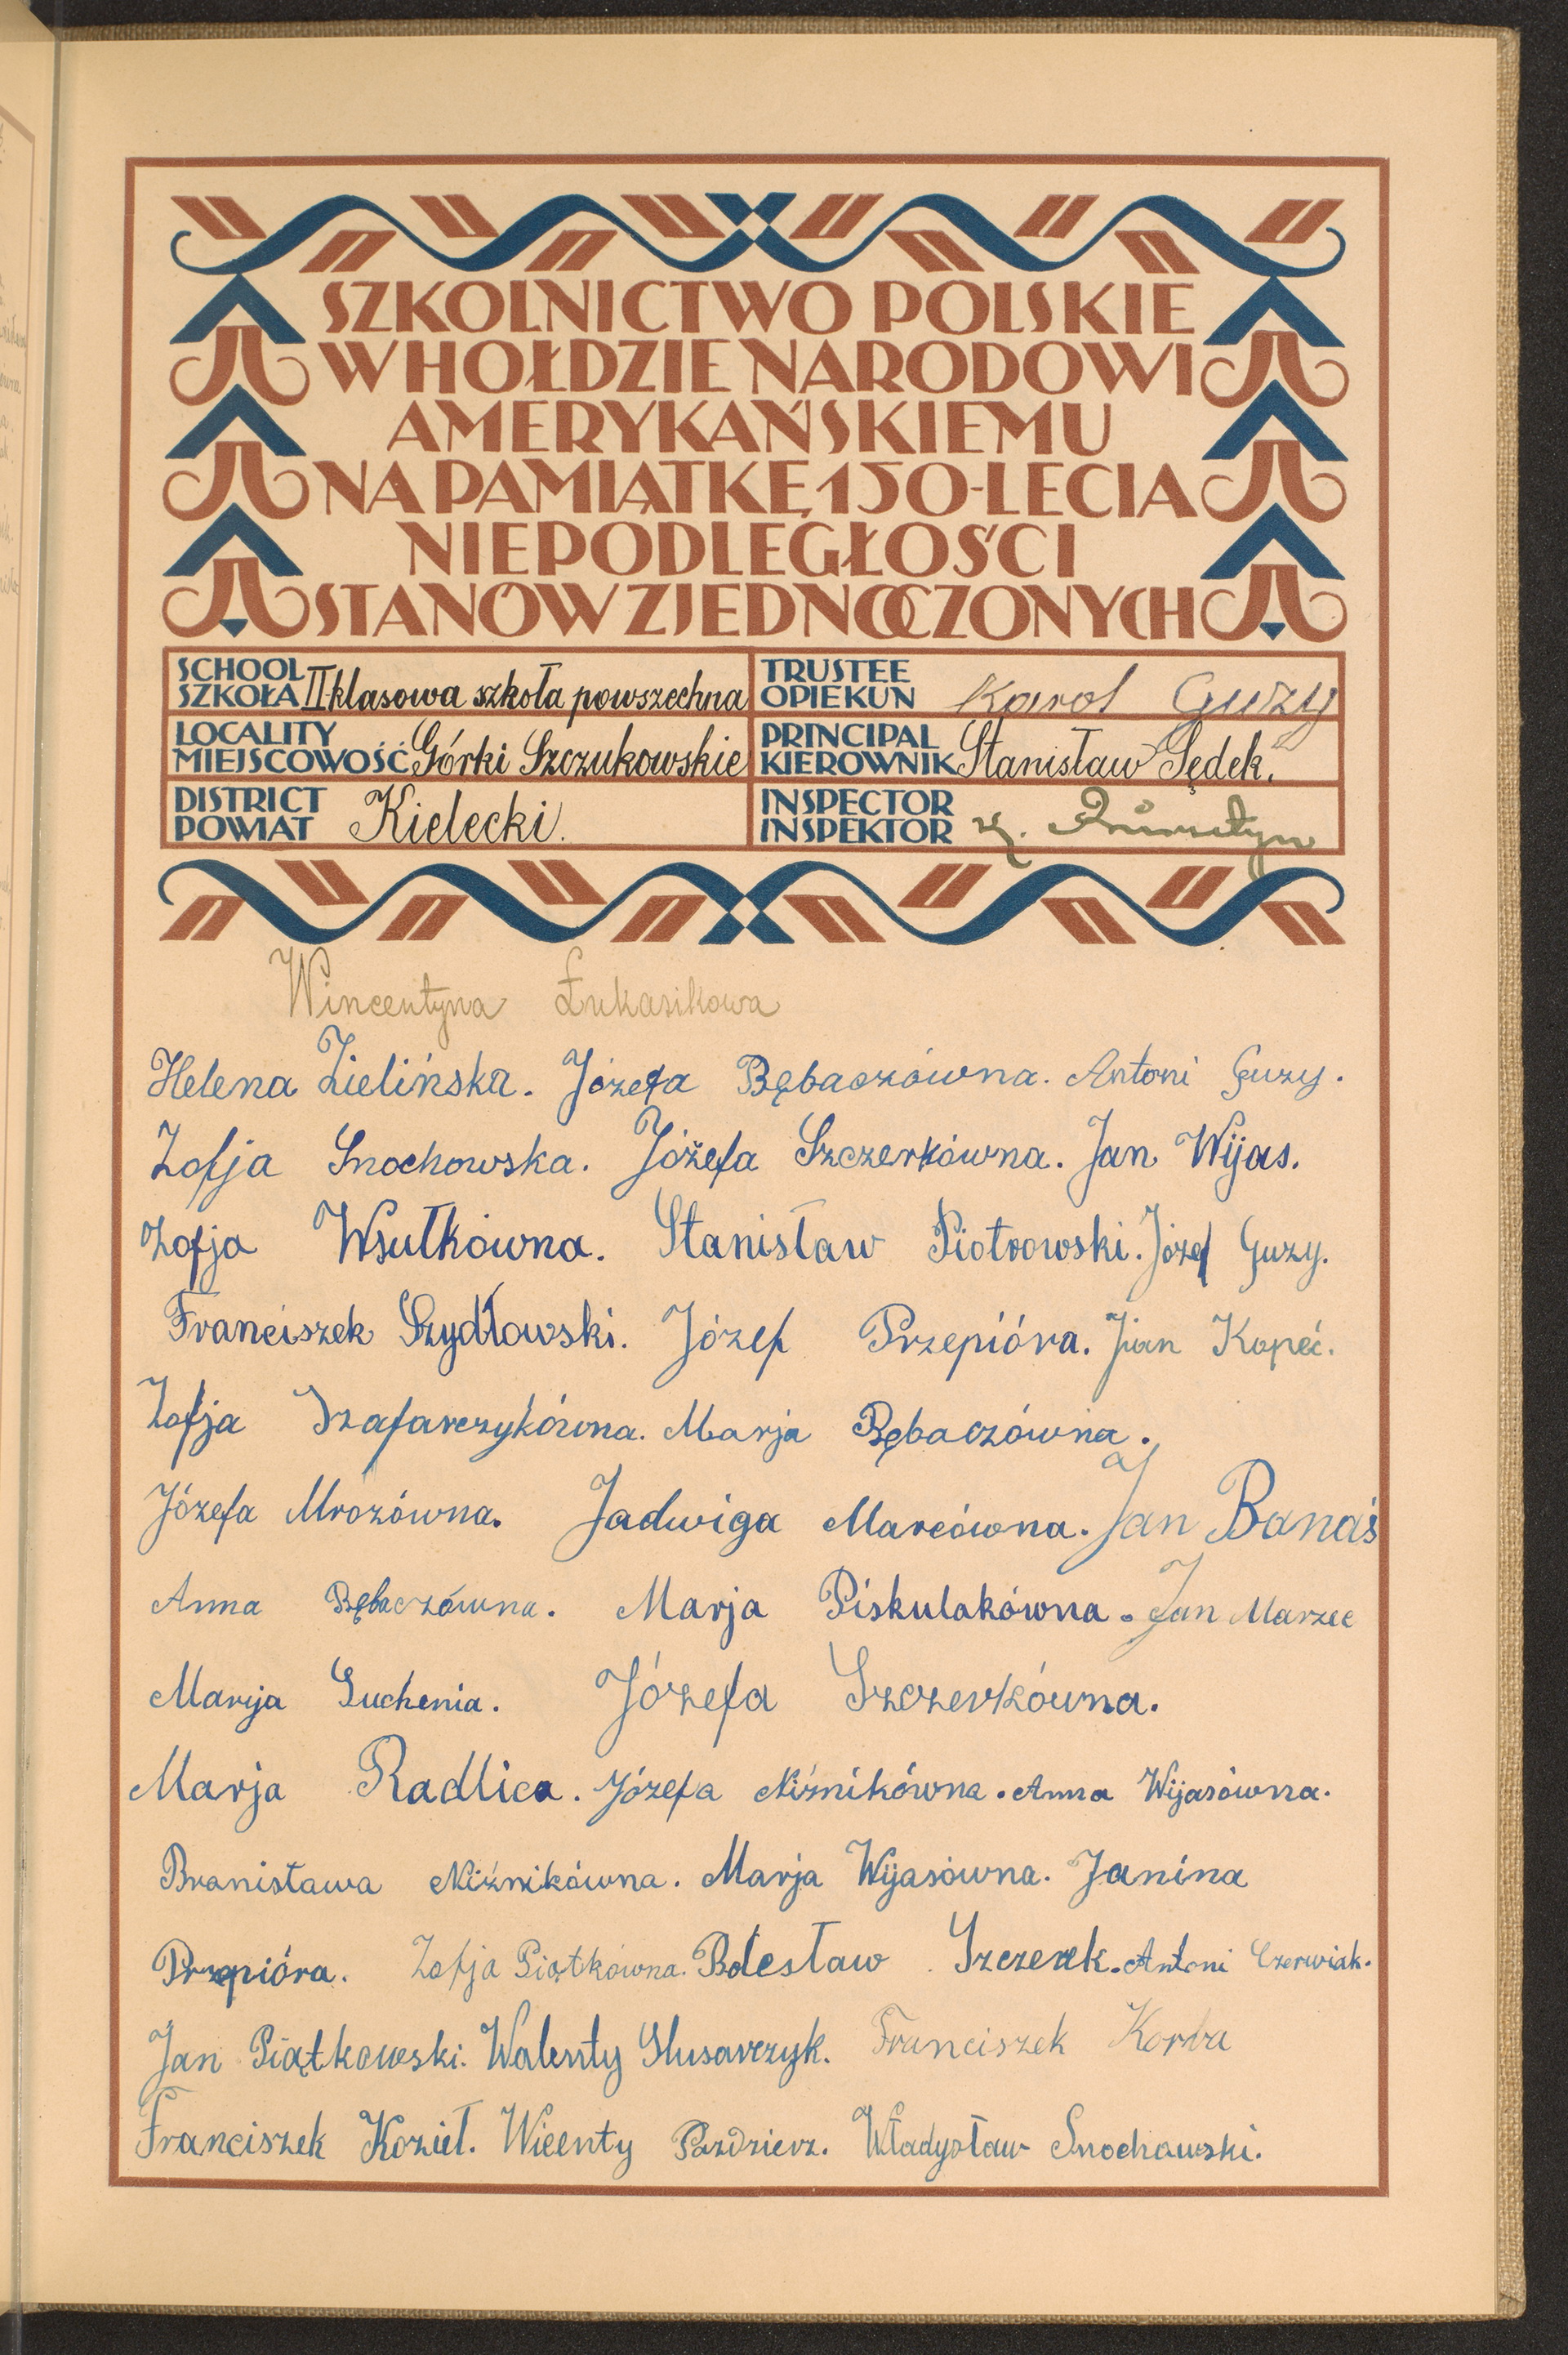 SZKOLNICTWO POLSKIE
W HOŁDZIE NARODOWI
AMERYKAŃSKIEMU
NA PAMIĄTKĘ 150-LECIA
NIEPODLEGŁOŚCI
STANÓW ZJEDNOCZONYCH
SCHOOL
SZKOŁA II-klasowa szkoła powszechna
TRUSTEE
OPIEKUN Karol Guzy
LOCALITY
MIEJSCOWOŚĆ Górki Szczukowskie
PRINCIPAL
KIEROWNIK Stanisław Sędek.
DISTRICT
POWIAT Kielecki.
INSPECTOR
INSPEKTOR
Wincentyna Łukasikowa
Helena Zielińska. Józefa Bębaczówna. Antoni Guzy.
Zofja Snochowska. Józefa Szczerkówna. Jan Wijas.
Zofja Wsułkówna. Stanisław Piotrowski. Józef Guzy.
Franciszek Szydłowski. Józef Przepióra. Jan Kopeć.
Zofja Szafarczykówna. Marja Bębaczówna.
Józefa Mrozówna. Jadwiga Marcówna. Jan Banaś
Anna Bębaczówna. Marja Piskulakówna. Jan Marzec
Marija Suchenia. Józefa Szczerkówna.
Marja Radlica. Józefa Niźnikówna. Anna Wijasówna.
Bronisława Niźnikówna. Marja Wijasówna. Janina
Przepióra. Zofja Piątkówna. Bolesław Szczerek. Antoni Czerwiak.
Jan Piątkowski. Walenty Slusarczyk. Franciszek Korba
Franciszek Kozieł. Wicenty Pazdzierz. Władysław Snochowski.